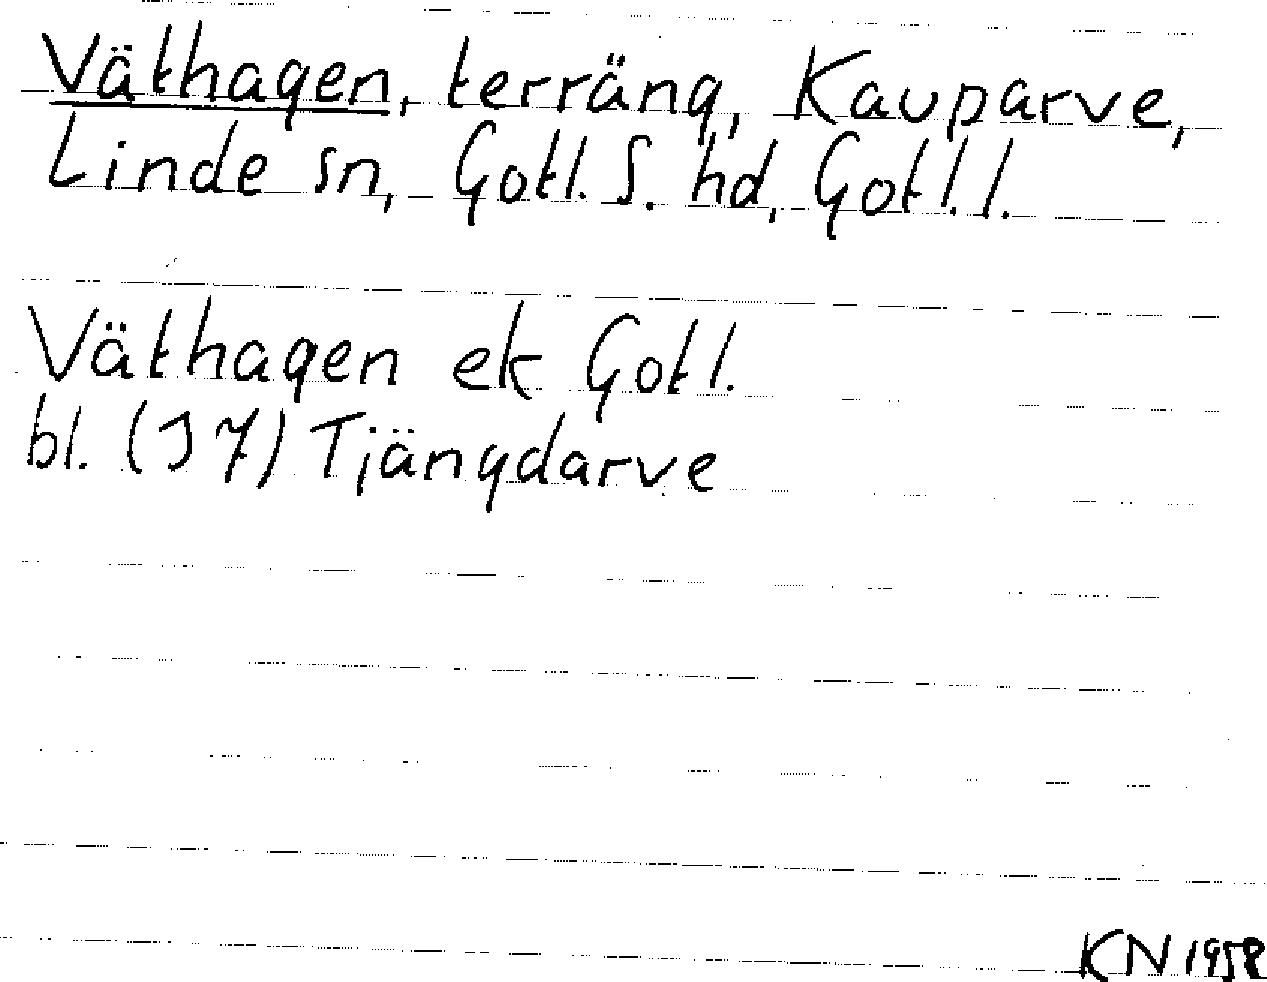 Väthagen, terräng, Kauparve,
Linde sn, Gotl. S. hd, Gotl. l.
Väthagen ek Gotl.
bl. (J7) Tjängdarve
KN 1958